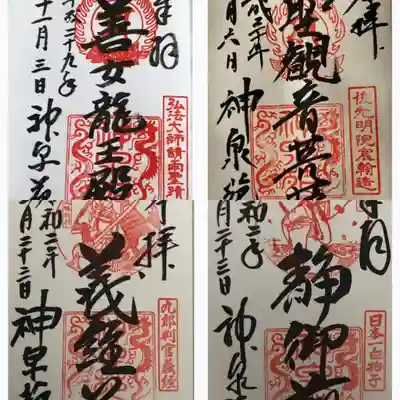 奉拝
善女龍王殿
弘法大師請雨聖蹟
平成二十九年
十一月三日
神泉苑
奉拝
聖観音菩薩
後光明院宸翰造
平成三十年
月六日
神泉苑
奉拝
義経
九郎判官義経
令和二年
月二十三日
神泉苑
奉拝
静御前
日本一白拍子
令和二年
月二十三日
神泉苑